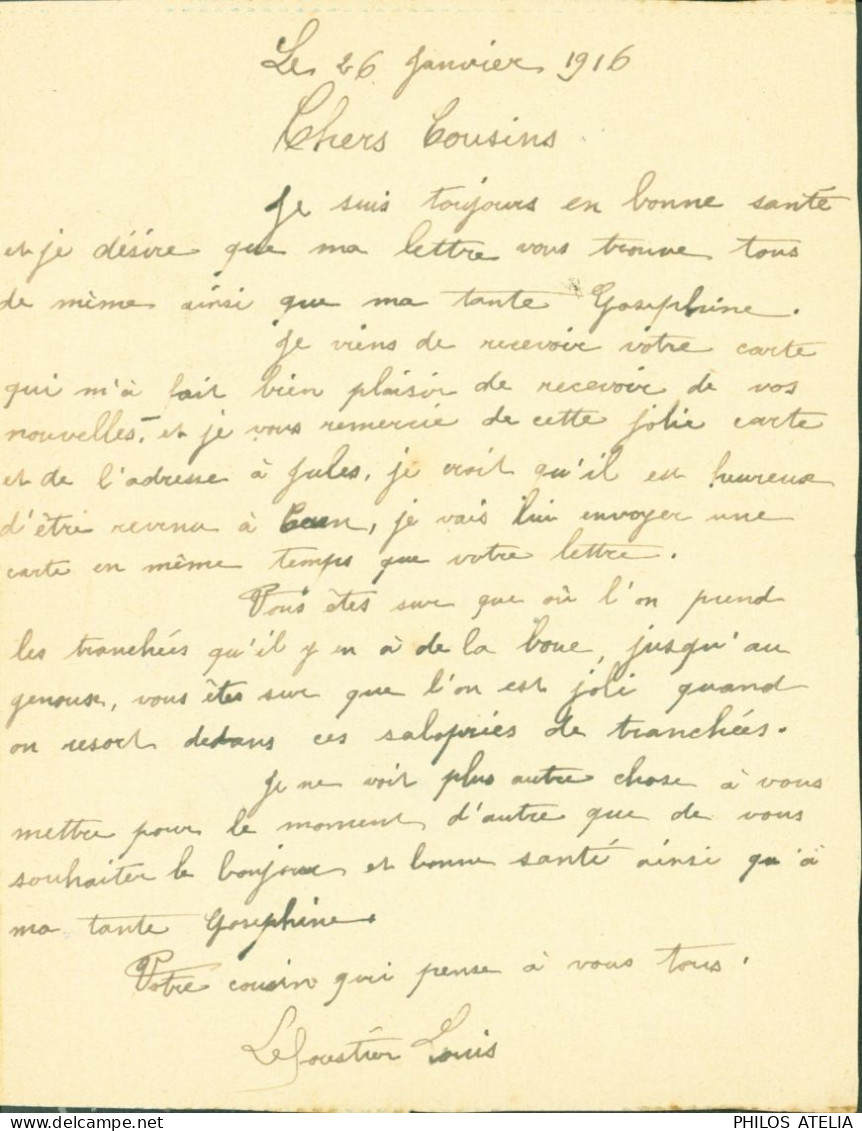 Le 26 janvier 1916
Chers Cousins
Je suis toujours en bonne santé
et je désire que ma lettre vous trouve tous
de même ainsi que ma tante Josephine.
Je viens de recevoir votre carte
qui m'à fait bien plaisir de recevoir de vos
nouvelles, et je vous remercie de cette jolie carte
et de l'adresse à Jules, je croit qu'il est heureux
d'être revenu à Caen, je vais lui envoyer une
carte en même temps que votre lettre.
Vous êtes sur que où l'on prend
les tranchées qu'il y en à de la boue, jusqu'au
genoux, vous êtes sur que l'on est joli quand
on resort dedans ces salopries de tranchées.
Je ne voit plus autre chose à vous
mettre pour le moment d'autre que de vous
souhaiter le bonjour et bonne santé ainsi qu'à
ma tante Josephine.
Votre cousin qui pense à vous tous.
Louis
PHILOS ATELIA